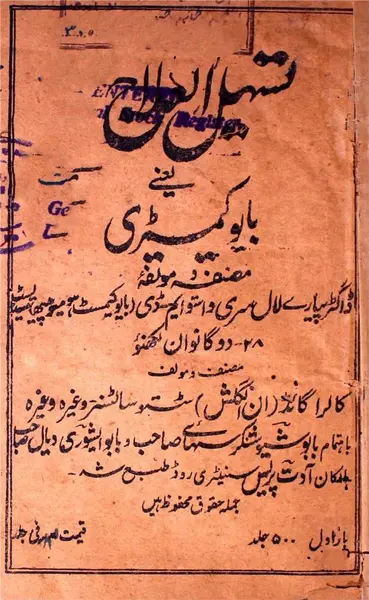 تسہیل العلاج
ENTERED
Stock Register
یعنے
بایو کیمسٹری
مصنفہ و مولفہ
ڈاکٹر پیارے لال سری واستوا ایم ڈی (بایو کیمسٹ ہومیوپیتھ
۲۸- دوگانوان لکھنؤ
مصنف و مولف
کالرا گائڈ (ان انگلش) وغیرہ وغیرہ
باہتمام بابو شیو شنکر سہائے صاحب و بابو ایشوری دیال صاحب
مالکان آدت پریس سنیٹری روڈ طبع شد-
جملہ حقوق محفوظ ہیں
بار اول ۵۰۰ جلد
قیمت فی جلد